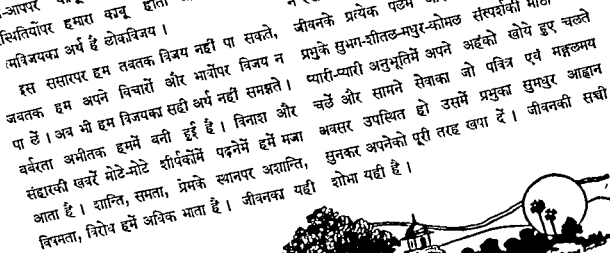 -आपपर
स्थितियोंपर हमारा काबू होता
त्मविजयका अर्थ है लोकविजय ।
इस संसारपर हम तबतक विजय नहीं पा सकते,
जबतक हम अपने विचारों और भावोंपर विजय न
पा लें । अब भी हम विजयका सही अर्थ नहीं समझते ।
बर्बरता अभीतक हममें बनी हुई है । विनाश और
संहारकी खबरें मोटे-मोटे शीर्षकोंमें पढ़नेमें हमें मजा
आता है । शान्ति, समता, प्रेमके स्थानपर अशान्ति,
विषमता, विरोध हमें अधिक भाता है । जीवनका यही
जीवनके प्रत्येक पलमें
प्रभुके सुभग-शीतल-मधुर-कोमल संस्पर्शकी मीठी
प्यारी-प्यारी अनुभूतिमें अपने अहंको खोये हुए चलते
चलें और सामने सेवाका जो पवित्र एवं मङ्गलमय
अवसर उपस्थित हो उसमें प्रभुका सुमधुर आह्वान
सुनकर अपनेको पूरी तरह खपा दें । जीवनकी सच्ची
शोभा यही है ।